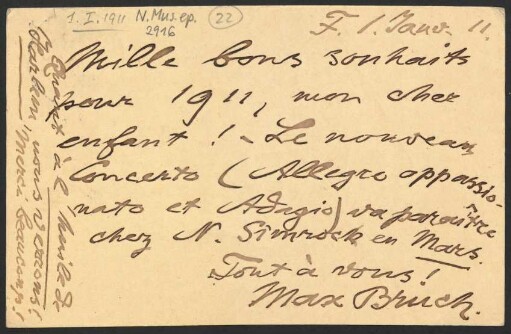 1. I. 1911 N. Mus. ep. 22
2916
F. 1. Janv. 11.
Mille bons souhaits
pour 1911, mon cher
enfant! - Le nouveau
Concerto (Allegro appassio-
nato et Adagio) va paraître
chez N. Simrock en Mars.
Tout à vous!
Max Bruch.
Quant à l'
nous verrons!
Merci beaucoup!